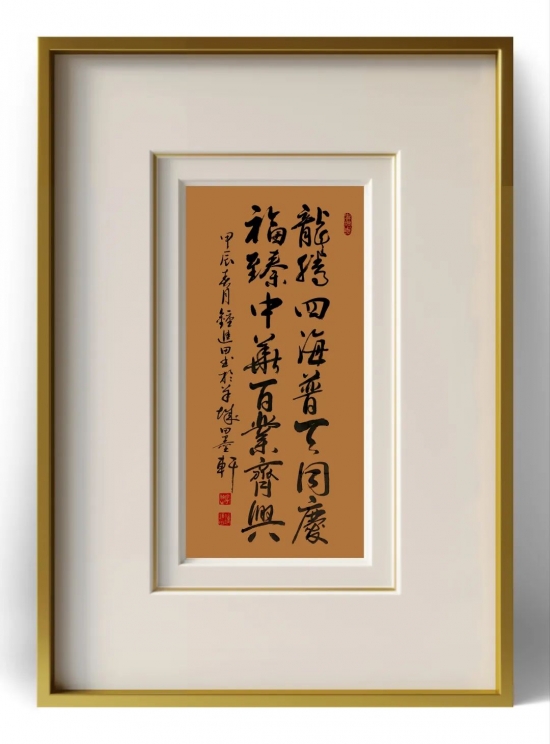 龍騰四海普天同慶
福臻中華百業齊興
甲辰春月鐘進田書於羊城田墨軒